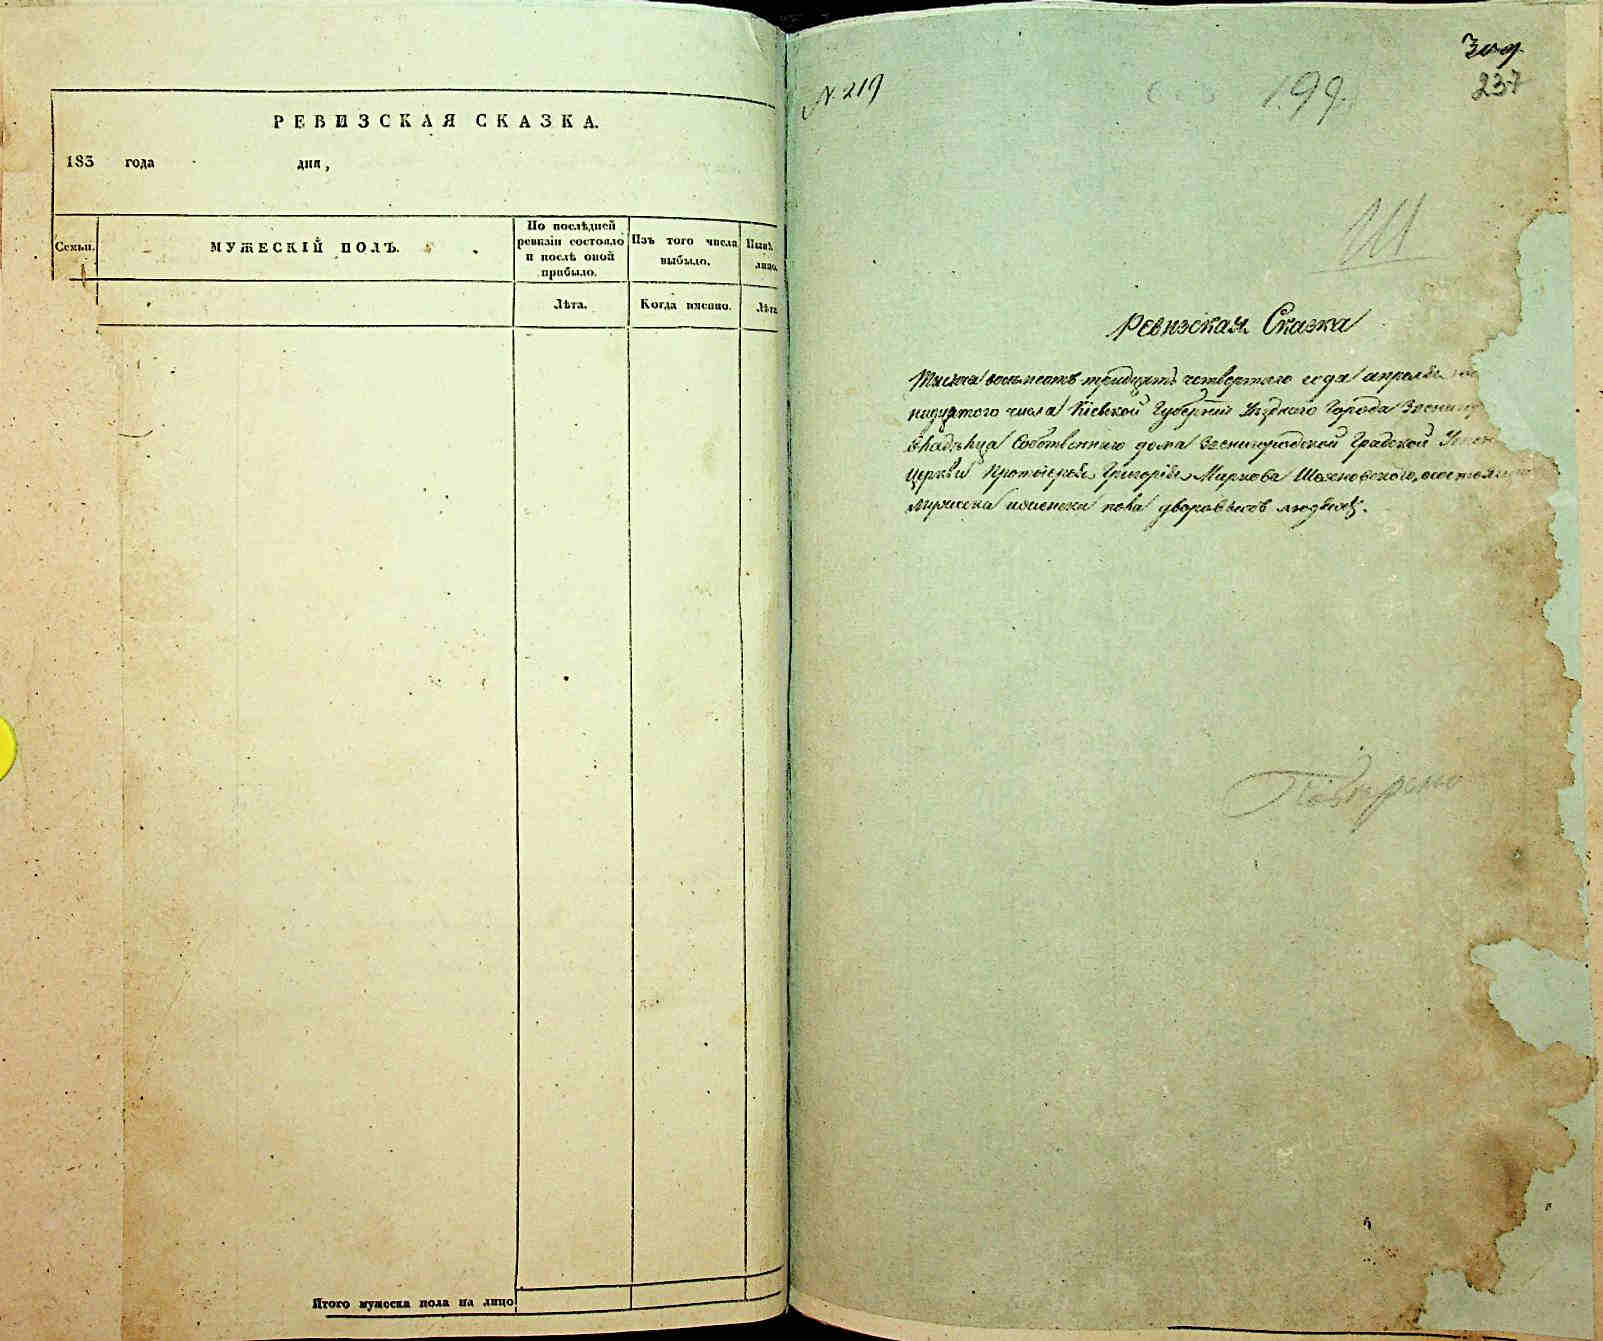 РЕВИЗСКАЯ СКАЗКА.
183 года дня,
Семьи.
МУЖЕСКІЙ ПОЛЪ.
По послѣдней ревизіи состояло и послѣ оной прибыло.
Изъ того числа выбыло.
Нынѣ лицо.
Лѣта.
Когда имянно.
Лѣта
Итого мужеска пола на лицо
№ 219
199.
309
237
Ревизская Сказка
Тысяча восемьсотъ тридцать четвертого года апреля
надцятого числа Кіевской Губерніи Уѣзднаго Города Звениго
владѣльца Собственнаго дома Звенигородской Градской Успен
церкви Протоіерея Григорія Маркова
мужеска женска пола дворовыхъ людяхъ.
Повѣрено